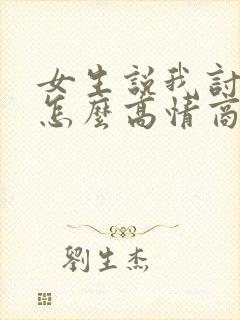 女生說我討
怎麼高情商
劉生杰